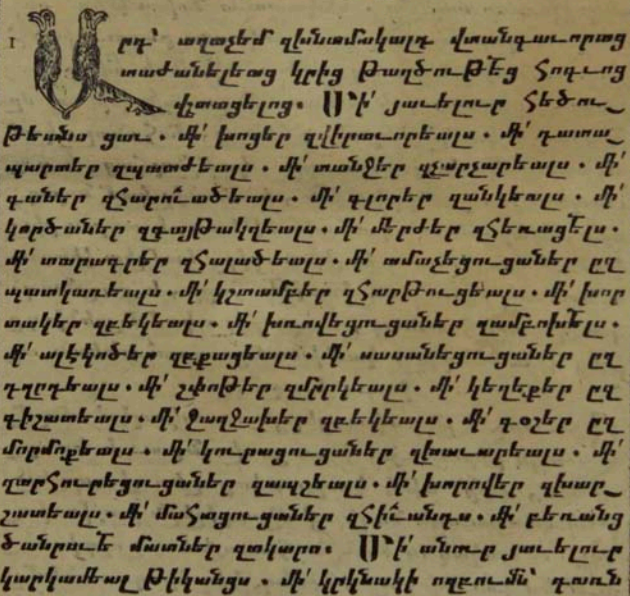 1 Արդ՝ աղաչեմ զխնամակալդ վտանգաւորաց
տաժանելեաց կրից թաղծութեց հոգւոց
վշտացելոց. Մի՛ յաւելուր հեծու֊
թեանս ցաւ. մի՛ խոցեր զվիրաւորեալս. մի՛ դատա֊
պարտեր զպատժեալս. մի՛ տանջեր զչարչարեալս. մի՛
գաներ զհարուածեալս. մի՛ գլորեր զանկեալս. մի՛
կործաներ զգայթակղեալս. մի՛ մերժեր զհեռացելս.
մի՛ տարագրեր զհալածեալս. մի՛ ամաչեցուցաներ ըզ
պատկառեալս. մի՛ կշտամբեր զհարթուցեալս. մի՛ խոր
տակեր զբեկեալս. մի՛ խռովեցուցաներ զամբոխելս.
մի՛ ալէկոծեր զքքացեալս. մի՛ սասանեցուցաներ ըզ
դղրդեալս. մի՛ շփոթեր զմրրկեալս. մի՛ կեղեքեր ըզ
գիշատեալս. մի՛ ջաղջախեր զբեկեալս. մի՛ գօշեր ըզ
մորմոքեալս. մի՛ կուրացուցաներ զխաւարեալս. մի՛
զարհուրեցուցաներ զապշեալս. մի՛ խորովեր զխար֊
շատեալս. մի՛ մահացուցաներ զհիւանդս. մի՛ բեռանց
ծանրութե մատներ զտկարս. Մի՛ անուր յաւելուր
կարկամեալ թիկանցս. մի՛ կրկնակի ողբումն՝ դառն